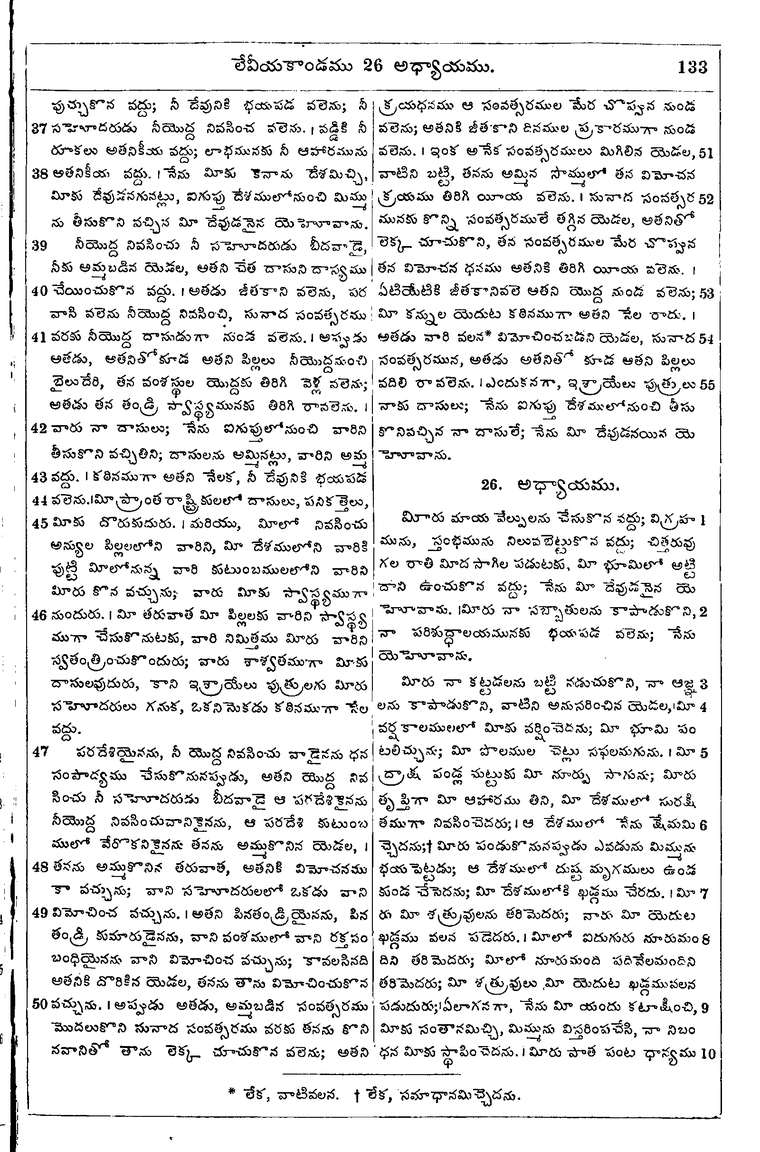 లేవీయకాండము 26 అధ్యాయము.
133
పుచ్చుకొన వద్దు; నీ దేవునికి భయపడ వలెను; నీ
37 సహోదరుడు నీయొద్ద నివసించ వలెను. । వడ్డికి నీ
రూకలు అతనికీయ వద్దు; లాభమునకు నీ ఆహారమును
38 అతనికీయ వద్దు. । నేను మీకు కనాను దేశమిచ్చి,
మీకు దేవుడనగునట్లు, ఐగుప్తు దేశములోనుంచి మిమ్ము
ను తీసుకొని వచ్చిన మీ దేవుడనైన యెహోవాను.
39 నీయొద్ద నివసించు నీ సహోదరుడు బీదవాడై,
నీకు అమ్మబడిన యెడల, అతని చేత దాసుని దాస్యము
40 చేయించుకొన వద్దు. । అతడు జీతకాని వలెను, పర
వాసి వలెను నీయొద్ద నివసించి, సునాద సంవత్సరము
41 వరకు నీయొద్ద దాసుడుగా నుండ వలెను. । అప్పుడు
అతడు, అతనితోకూడ అతని పిల్లలు నీయొద్దనుంచి
బైలుదేరి, తన వంశస్థుల యొద్దకు తిరిగి వెళ్ల వలెను;
అతడు తన తండ్రి స్వాస్థ్యమునకు తిరిగి రావలెను. ।
42 వారు నా దాసులు; నేను ఐగుప్తులోనుంచి వారిని
తీసుకొని వచ్చితిని; దాసులను అమ్మినట్లు, వారిని అమ్మ
43 వద్దు. । కఠినముగా అతని నేలక, నీ దేవునికి భయపడ
44 వలెను. । మీ ప్రాంత రాష్ట్రికులలో దాసులు, పనికత్తెలు,
45 మీకు దొరుకుదురు. । మరియు, మీలో నివసించు
అన్యుల పిల్లలలోని వారిని, మీ దేశములోని వారికి
పుట్టి మీలోనున్న వారి కుటుంబములలోని వారిని
మీరు కొన వచ్చును; వారు మీకు స్వాస్థ్యముగా
46 నుందురు. । మీ తరువాత మీ పిల్లలకు వారిని స్వాస్థ్య
ముగా చేసుకొనుటకు, వారి నిమిత్తము మీరు వారిని
స్వతంత్రించుకొందురు; వారు శాశ్వతముగా మీకు
దాసులవుదురు, కాని ఇశ్రాయేలు పుత్రులగు మీరు
సహోదరులు గనుక, ఒకనిమెకడు కఠినముగా నేల
వద్దు.
47 పరదేశియైనను, నీ యొద్ద నివసించు వాడైనను ధన
సంపాద్యము చేసుకొనునప్పుడు, అతని యొద్ద నివ
సించు నీ సహోదరుడు బీదవాడై ఆ పరదేశికైనను
నీయొద్ద నివసించువానికైనను, ఆ పరదేశి కుటుంబ
ములో వేరొకనికైనను తనను అమ్ముకొనిన యెడల,
48 తనను అమ్ముకొనిన తరువాత, అతనికి విమోచనము
కా వచ్చును; వాని సహోదరులలో ఒకడు వాని
49 విమోచించ వచ్చును. । అతని పినతండ్రియైనను, పిన
తండ్రి కుమారుడైనను, వాని వంశములో వాని రక్తసం
బంధియైనను వాని విమోచించ వచ్చును; కావలసినది
అతనికి దొరికిన యెడల, తనను తాను విమోచించుకొన
50 వచ్చును. । అప్పుడు అతడు, అమ్మబడిన సంవత్సరము
మొదలుకొని సునాద సంవత్సరము వరకు తనను కొని
నవానితో తాను లెక్క చూచుకొన వలెను; అతని
క్రయధనము ఆ సంవత్సరముల మేర చొప్పున నుండ
వలెను; అతనికి జీతకాని దినముల ప్రకారముగా నుండ
వలెను. । ఇంక అనేక సంవత్సరములు మిగిలిన యెడల, 51
వాటిని బట్టి, తనను అమ్మిన సొమ్ములో తన విమోచన
క్రయము తిరిగి యీయ వలెను. । సునాద సంవత్సర 52
మునకు కొన్ని సంవత్సరములే తగ్గిన యెడల, అతనితో
లెక్క చూచుకొని, తన సంవత్సరముల మేర చొప్పున
తన విమోచన ధనము అతనికి తిరిగి యీయ వలెను. ।
ఏటియేటికి జీతకానివలె ఆతని యొద్ద నుండ వలెను; 53
మీ కన్నుల యెదుట కఠినముగా అతని నేల రాదు. ।
అతడు వారి వలన* విమోచించబడని యెడల, సునాద 54
సంవత్సరమున, అతడు అతనితో కూడ ఆతని పిల్లలు
వదిలి రావలెను. । ఎందుకనగా, ఇశ్రాయేలు పుత్రులు 55
నాకు దాసులు; నేను ఐగుప్తు దేశములోనుంచి తీసు
కొనివచ్చిన నా దాసులే; నేను మీ దేవుడనయిన యె
హోవాను.
26. అధ్యాయము.
మీరు మాయ వేల్పులను చేసుకొన వద్దు; విగ్రహ 1
మును, స్తంభమును నిలువబెట్టుకొన వద్దు; చిత్తరువు
గల రాతి మీద సాగిల పడుటకు, మీ భూమిలో అట్టి
దాని ఉంచుకొన వద్దు; నేను మీ దేవుడనైన యె
హోవాను. । మీరు నా సబ్బాతులను కాపాడుకొని, 2
నా పరిశుద్ధాలయమునకు భయపడ వలెను; నేను
యెహోవాను.
మీరు నా కట్టడలను బట్టి నడుచుకొని, నా ఆజ్ఞ 3
లను కాపాడుకొని, వాటిని అనుసరించిన యెడల, । మీ 4
వర్ష కాలములలో మీకు వర్షించెదను; మీ భూమి పం
టలిచ్చును; మీ పొలముల చెట్లు సఫలమగును. । మీ 5
ద్రాక్ష పండ్ల చుట్టుకు మీ నూర్పు సాగును; మీరు
తృప్తిగా మీ ఆహారము తిని, మీ దేశములో సురక్షి
తముగా నివసించెదరు; । ఆ దేశములో నేను క్షేమమి 6
చ్చెదను;† మీరు పండుకొనునప్పుడు ఎవడును మిమ్మును
భయపెట్టడు; ఆ దేశములో దుష్ట మృగములు ఉండ
కుండ చేసెదను; మీ దేశములోకి ఖడ్గము చేరదు. । మీ 7
రు మీ శత్రువులను తరిమెదరు; వారు మీ యెదుట
ఖడ్గము వలన పడెదరు. । మీలో ఐదుగురు నూరుమం 8
దిని తరిమెదరు; మీలో నూరుమంది పదివేలమందిని
తరిమెదరు; మీ శత్రువులు మీ యెదుట ఖడ్గమువలన
పడుదురు; । ఏలాగనగా, నేను మీ యందు కటాక్షించి, 9
మీకు సంతానమిచ్చి, మిమ్మును విస్తరింపచేసి, నా నిబం
ధన మీకు స్థాపించెదను. । మీరు పాత పంట ధాన్యము 10
* లేక, వాటివలన. † లేక, సమాధానమిచ్చెదను.